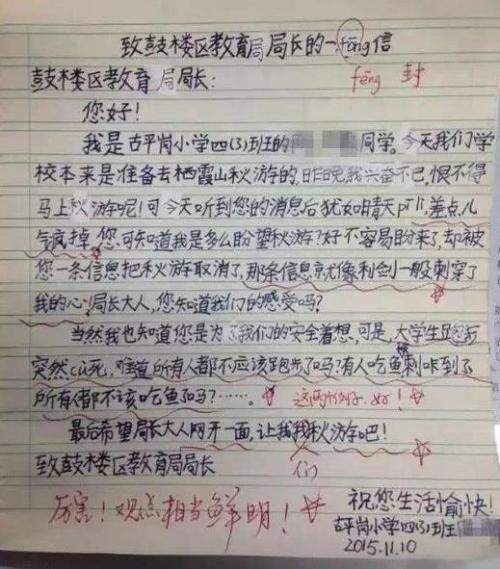 致鼓楼区教育局局长的一fōng信
fēng 封
鼓楼区教育局局长：
您好！
我是古平岗小学四(3)班的 同学。今天我们学
校本来是准备去栖霞山秋游的，昨晚我兴奋不已，恨不得
马上秋游呢！可今天听到您的消息后犹如晴天pīlì，差点儿
气疯掉。您可知道我是多么盼望秋游？好不容易盼来了，却被
您一条信息把秋游取消了，那条信息就像利剑一般刺穿了
我的心！局长大人，您知道我们的感受吗？
当然我也知道您是为了我们的安全着想，可是，大学生跑步
突然cù死，难道所有人都不应该跑步了吗？有人吃鱼被刺咔到了
所有人都不该吃鱼了吗？……。 这两个例子，好！
最后希望局长大人网开一面，让我我秋游吧！
致鼓楼区教育局局长 们
厉害！观点相当鲜明！ 祝您生活愉快！
古平岗小学四(3)班
2015.11.10